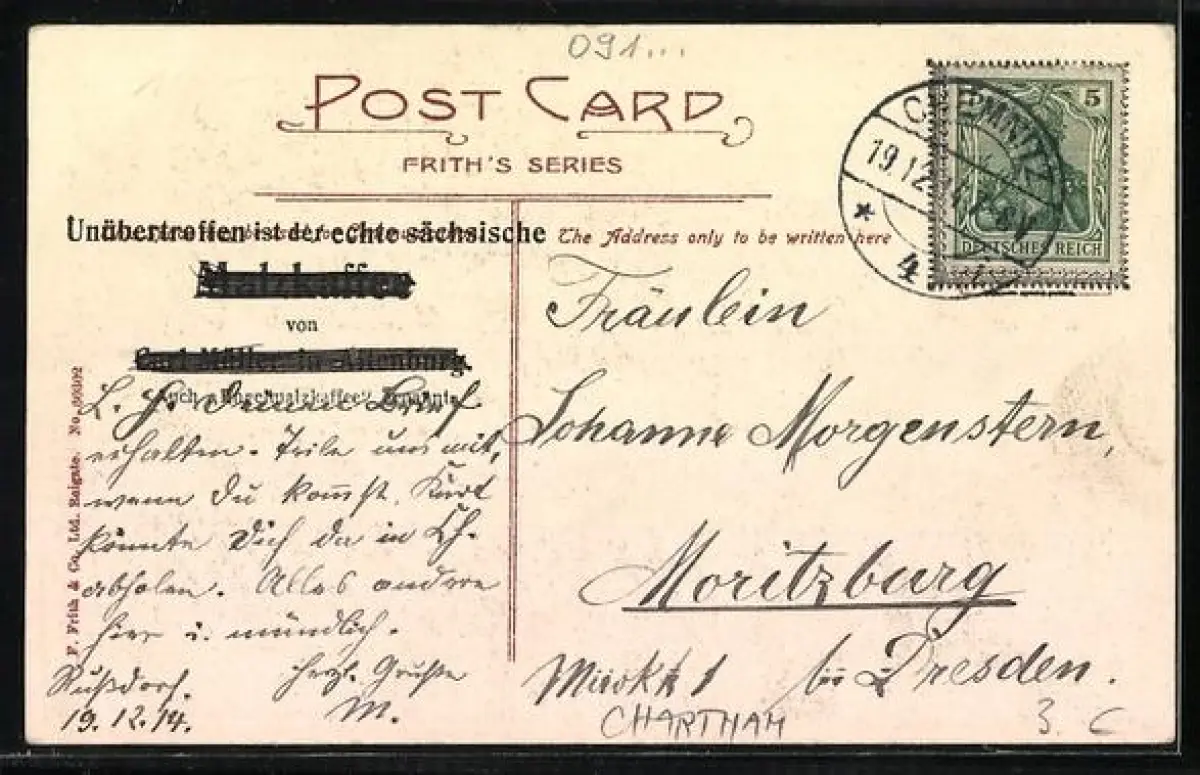 091...
POST CARD
FRITH'S SERIES
Unübertroffen ist der echte sächsische
Malzkaffee
von
Carl Müller in Altenburg.
The Address only to be written here
CHEMNITZ
19.12.
* 4
5
DEUTSCHES REICH
F. Frith & Co. Ltd. Reigate. No.
L. H. Deinen Brief
erhalten. Teile uns mit,
wann Du kommst. Kurt
könnte Dich da in Ch.
abholen. Alles andere
hier u. mündlich.
Herzl. Grüße
M.
Rußdorf.
19.12.14.
Fräulein
Johanne Morgenstern,
Moritzburg
bei Dresden.
1
CHARTHAM
3 C